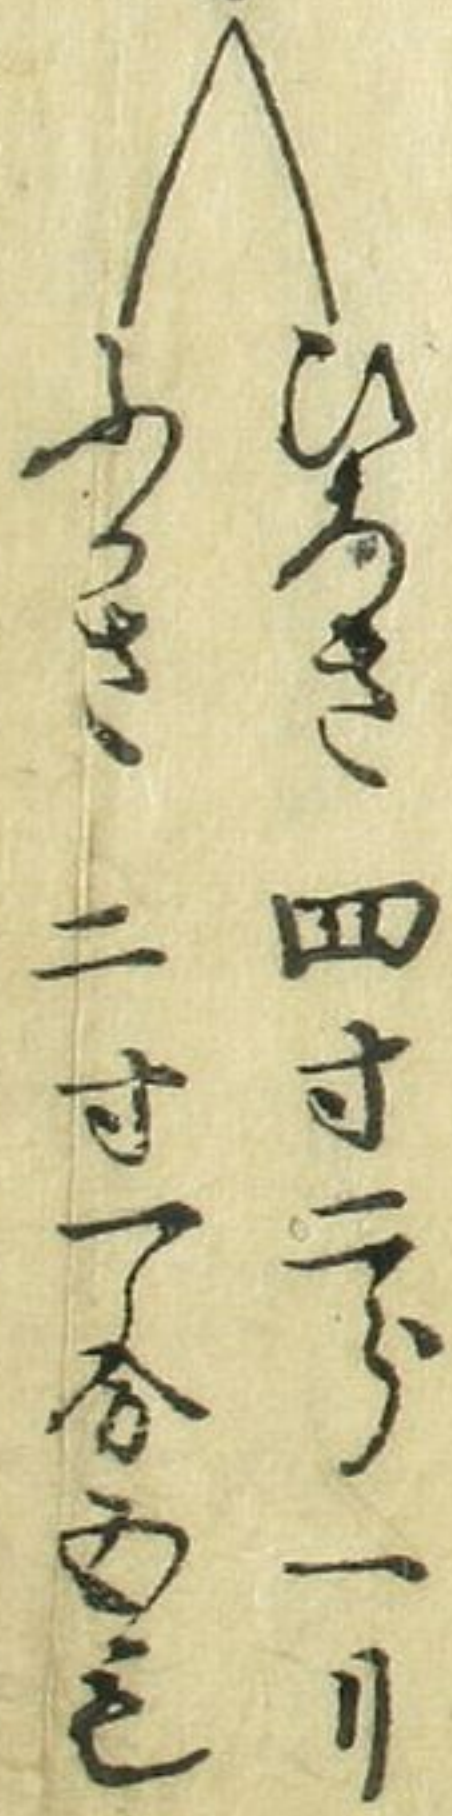 ひろさ 四寸二分一リ
ふかさ 二寸一分五毛